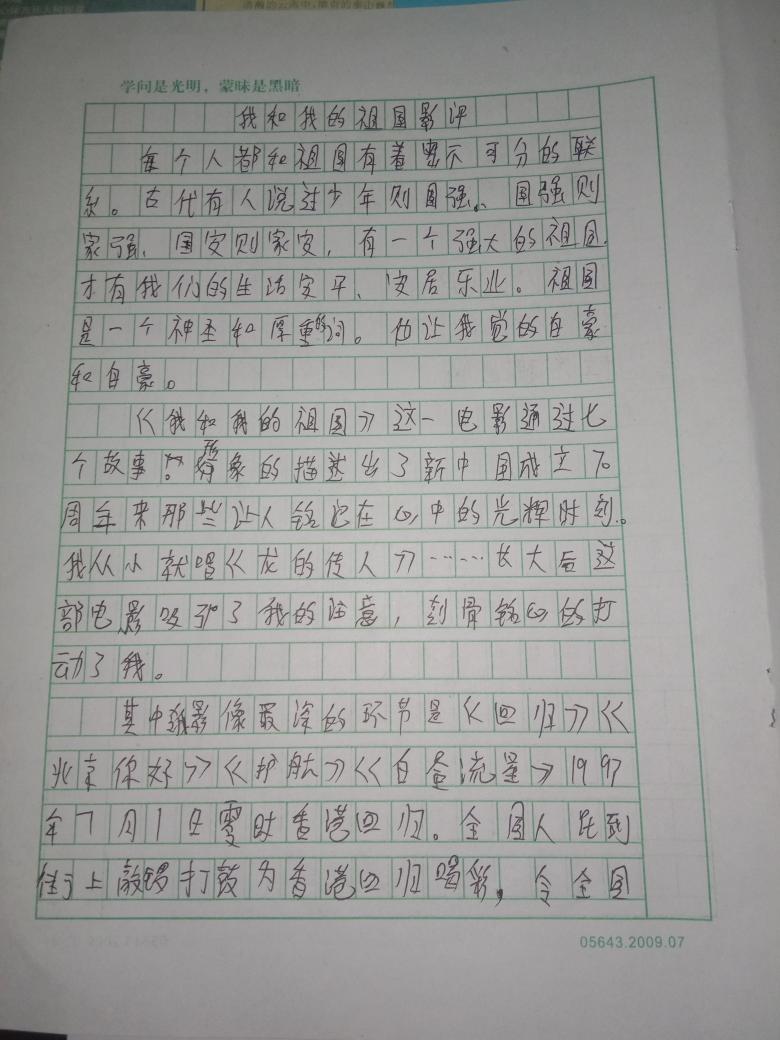 学问是光明，蒙昧是黑暗
我和我的祖国影评
每个人都和祖国有着密不可分的联
系。古代有人说过少年则国强、国强则
家强、国安则家安，有一个强大的祖国，
才有我们的生活安平、安居乐业。祖国
是一个神圣和厚重的词。他让我觉的自豪
和自豪。
《我和我的祖国》这一电影通过七
个故事形象的描述出了新中国成立70
周年来那些让人铭记在心中的光辉时刻。
我从小就唱《龙的传人》……长大后这
部电影吸引了我的注意，刻骨铭心的打
动了我。
其中影像最深的环节是《回归》《
北京你好》《护航》《白昼流星》1997
年7月1日零时香港回归。全国人民到
街上敲锣打鼓为香港回归喝彩，令全国
05643.2009.07